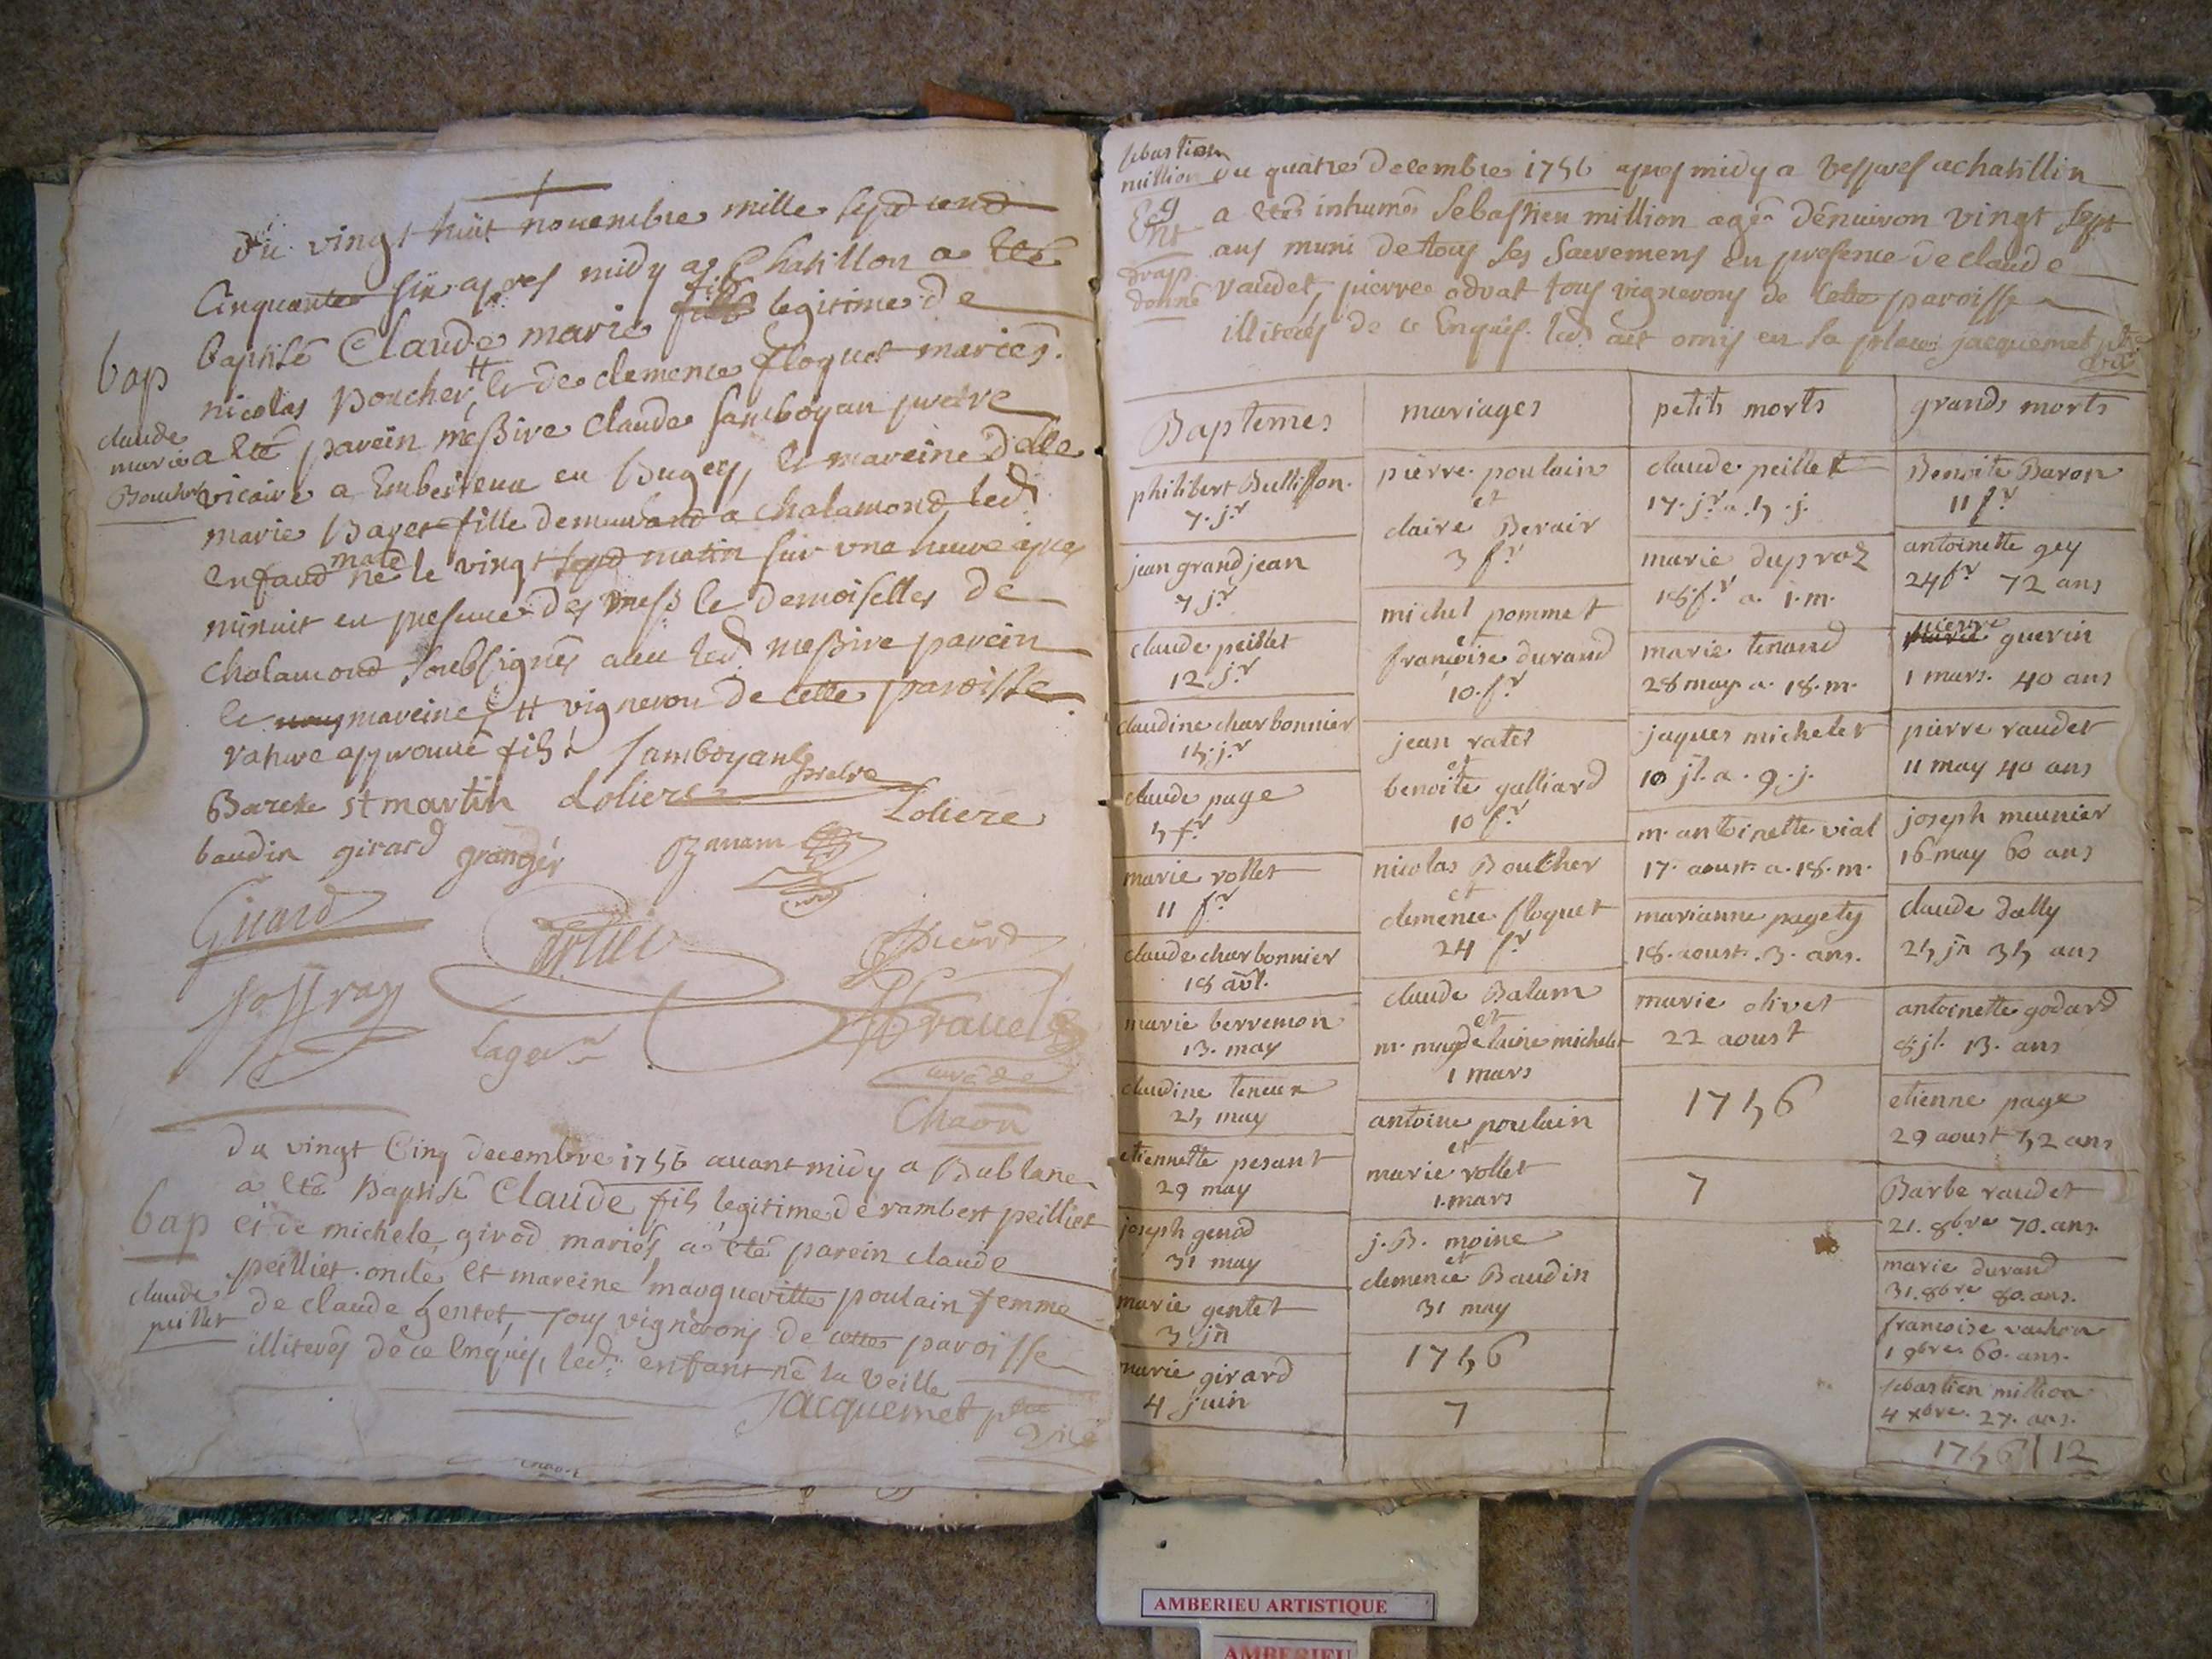 Du vingt huit novembre mille sept cent
Cinquante six apres midy a Chatillon a eté
baptisé Claude marie fils legitime de
nicolas Boucher # et de clemence floquet mariés.
bap
claude
marie
Boucher
a eté parein messire Claude Samboyan pretre
vicaire a Emberieux en Bugey, et mareine Delle
marie Baget fille demeurand a chalamond led.
enfand maté né le vingt sept matin sur une heure apres
minuit en presence des mess et demoiselles de
chalamond soubsignés avec led. messire parein
et mareine, # vigneron de cette paroisse
rature approuvé fils
Samboyan pretre
Bareke st martin Loliere Loliere
baudin girard granger
Girard
Joffray
Lager
Chaon
Du vingt Cinq decembre 1756 avant midy a Bublane
a eté Baptisé Claude fils legitime de rambert peilliet
bap
et de michele girod mariés, a eté parein claude
peilliet oncle et mareine margueritte poulain femme
claude
peillet
de claude gentet, tous vignerons de cette paroisse
illiterés de ce Enquis, led. enfant né la veille
Jacquemet ptre
curé
Sebastien
million
Du quatre decembre 1756 apres midy a vespres a chatillin
a eté inhumé Sebastien million agé d'environ vingt sept
ans muni de tous ses Sacremens en presence de claude
donné
vaudet, pierre odvat tous vignerons de cette paroisse
illiterés de ce Enquis. led. act omis en sa place jacquemet ptre
curé
Baptemes
philibert Bullisson.
7. jr
jean grandjean
7 jr
claude peillet
12 jr
claudine charbonnier
15. jr
claude page
5 fr
marie rollet
11 fr
claude charbonnier
18 avl.
marie berremon
13. may
claudine teneur
25 may
etiennette pesant
29 may
joseph genod
31 may
marie gentet
3 jn
marie girard
4 juin
mariages
pierre poulain
et
claire Berair
3 fr
michel pommet
et
francoise durand
10. fr
jean ratet
et
benoite galliard
10 fr
nicolas Boucher
et
clemence floquet
24 fr
claude Balam
et
m. magdelaine michelet
1 mars
antoine poulain
et
marie rollet
1. mars
j. B. moine
et
clemence Baudin
31 may
1756
7
petits morts
claude peillet
17. jr. a. 5. j.
marie duproz
18 fr. a. 1. m.
marie tenand
28 may. a. 18. m.
jaques michelet
10 jl. a. 9. j.
m. antoinette vial
17. aoust. a. 18. m.
marianne pagety
18. aoust. 3. ans.
marie olivet
22 aoust
1756
7
grands morts
Benoite Baron
11 fr
antoinette gey
24 fr 72 ans
pierre guerin
1 mars. 40 ans
pierre vaudet
11 may 40 ans
joseph meunier
16 may 60 ans
claude dally
25 jn 35 ans
antoinette godard
8. jl. 13. ans
etienne page
29 aoust 52 ans
Barbe vaudet
21. 8bre 70. ans.
marie durand
31. 8bre 80. ans.
francoise vachon
1 9bre. 60. ans.
sebastien million
4 xbre. 27. ans.
1756 | 12
AMBERIEU ARTISTIQUE
AMBERIEU